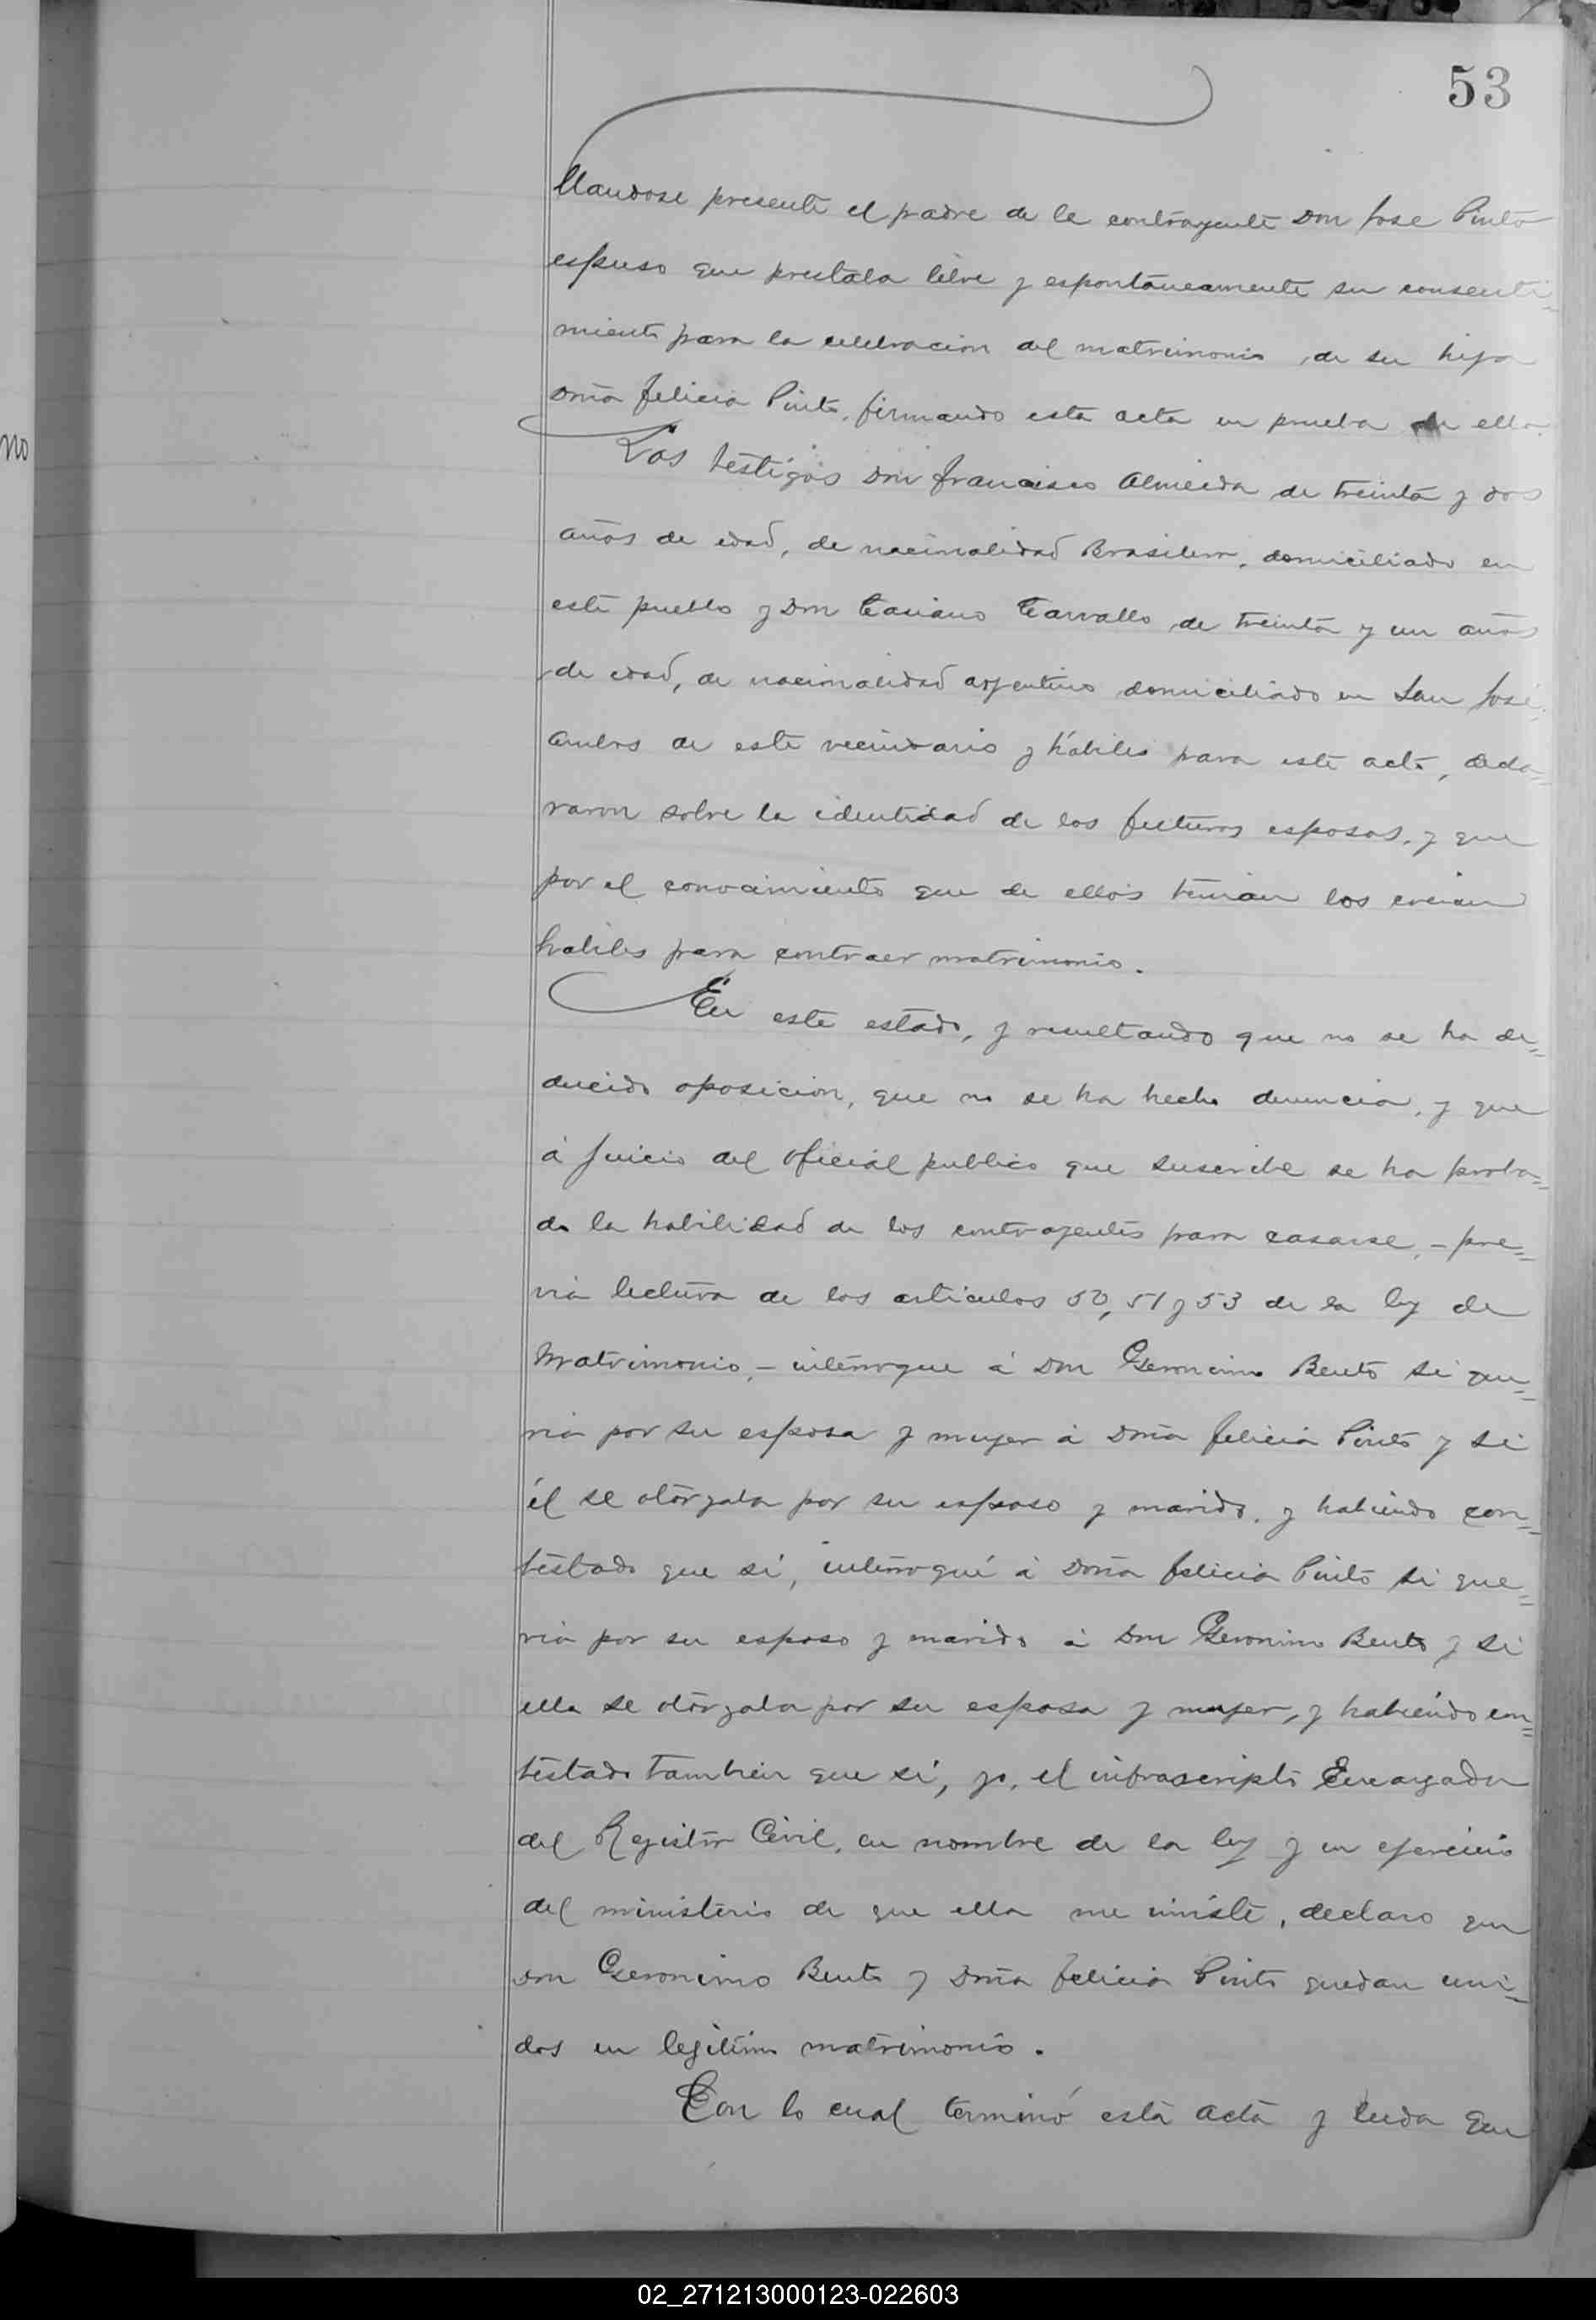 53
llandose presente el padre de la contrayente Don Jose Pinto
espuso que prestaba libre y espontáneamente su consenti-
miento para la celebracion del matrimonio, de su hija
Doña Felicia Pinto, firmando esta acta en prueba de ello.
Los testigos Don Francisco Almeida de treinta y dos
años de edad, de nacionalidad Brasilero, domiciliado en
este pueblo y Don Casiano Carvallo de treinta y un años
de edad, de nacionalidad argentino domiciliado en San José,
ambos de este vecindario y hábiles para este acto, decla=
raron sobre la identidad de los futuros esposos, y que
por el conocimiento que de ellos tenian los creian
habiles para contraer matrimonio.
En este estado, y resultando que no se ha de=
ducido oposicion, que no se ha hecho denuncia, y que
á juicio del oficial publico que suscribe se ha proba=
do la habilidad de los contrayentes para casarse, - pre=
via lectura de los articulos 50, 51 y 53 de la ley de
Matrimonio, - interrogue á Don Geronimo Bento si que=
ria por su esposa y mujer á Doña Felicia Pinto y si
él se otorgaba por su esposo y marido, y habiendo con=
testado que sí, interrogué á Doña Felicia Pinto si que=
ria por su esposo y marido á Don Geronimo Bento y si
ella se otorgaba por su esposa y mujer, y habiendo con=
testado tambien que sí, yo, el infrascripto Encargado
del Registro Civil, en nombre de la ley y en ejercicio
del ministerio de que ella me inviste, declaro que
Don Geronimo Bento y Doña Felicia Pinto quedan uni=
dos en legitimo matrimonio.
Con lo cual terminó esta acta y leida que
no
02_271213000123-022603